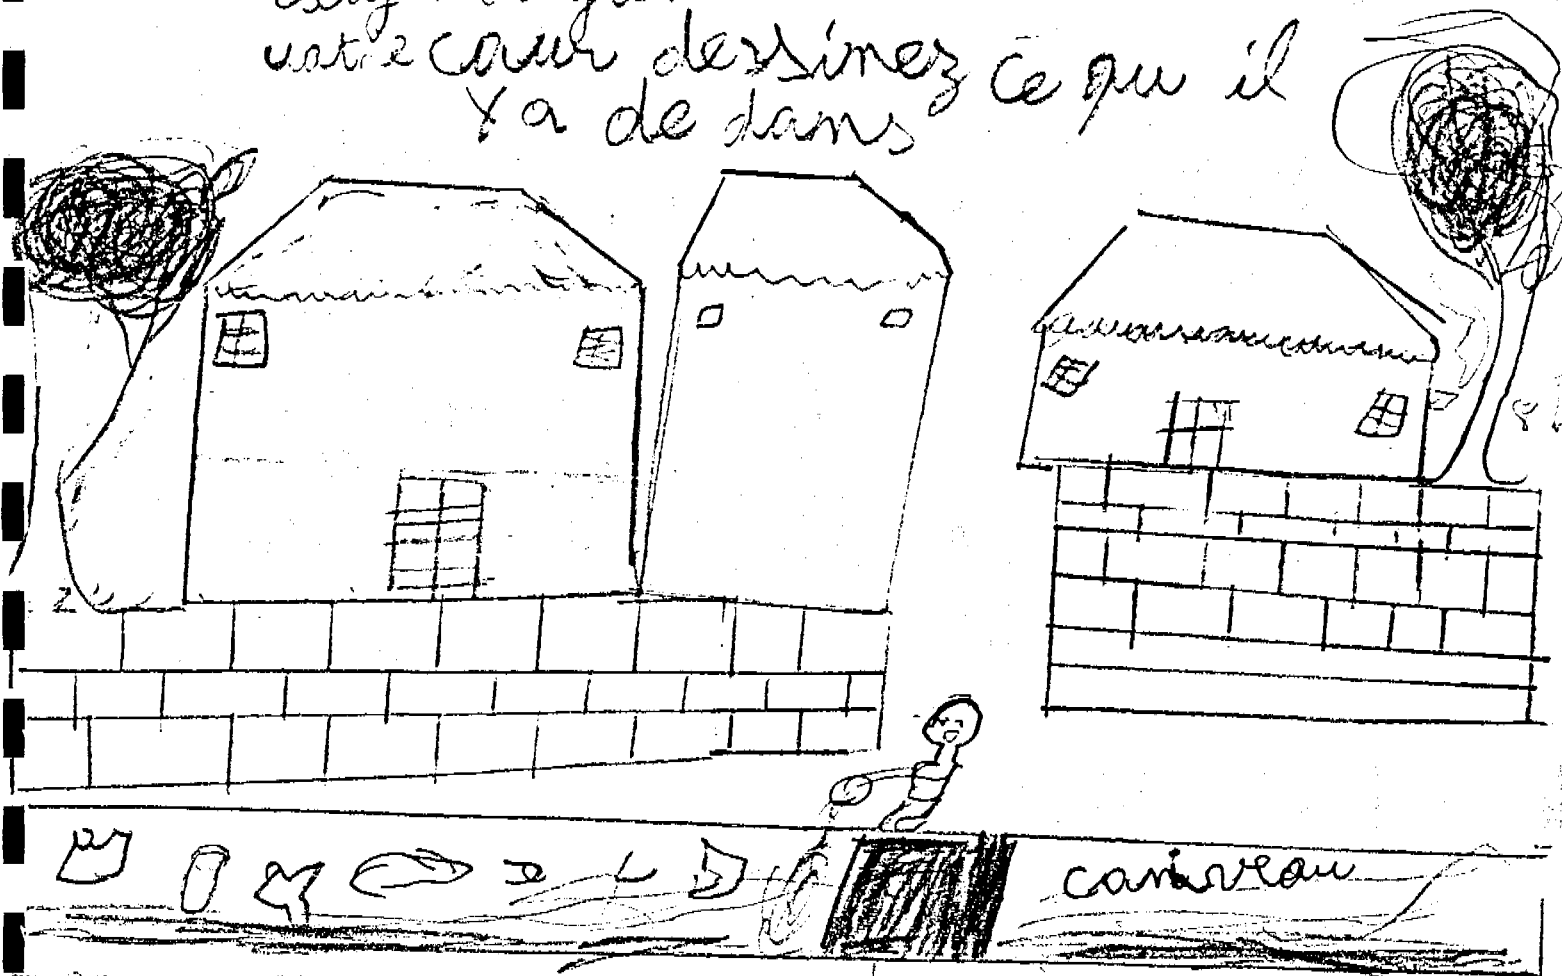 votre cœur dessinez ce qu il
Y a de dans
caniveau